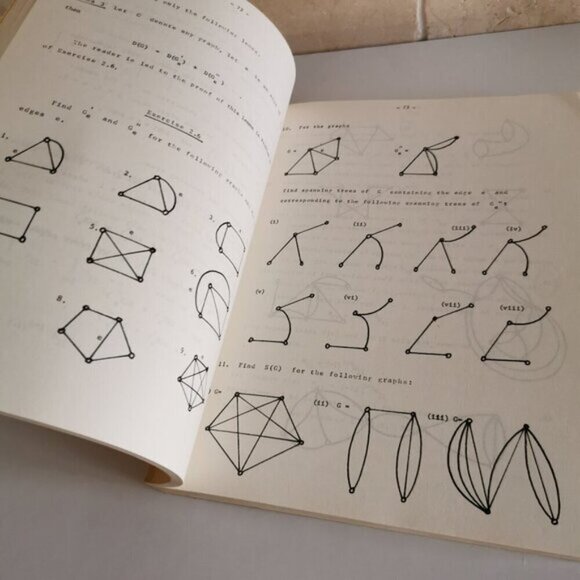 - 72 -
only the following lemma.
Let G denote any graph, let e
then
D(G) = D(G'e) + D(G"e)
The reader is led to the proof of this lemma
of Exercise 2.6.
Exercise 2.6
Find G'e and G"e for the following graphs
edges e.
1.
e
2.
e
3.
5.
e
6.
e
8.
e
5.
- 73 -
10. For the graphs
G =
e
G"e =
find spanning trees of G containing the edge e and
corresponding to the following spanning trees of G"e:
(i)
(ii)
(iii)
(iv)
(v)
(vi)
(vii)
(viii)
11. Find S(G) for the following graphs:
) G=
(ii) G =
(iii) G=